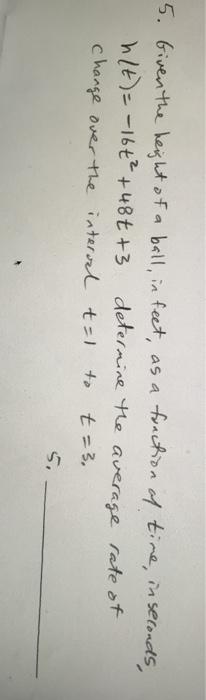 5. Given the height of a ball, in feet, as a function of time, in seconds,
h(t) = -16t² + 48t + 3 determine the average rate of
change over the interval t = 1 to t = 3.
5. ________